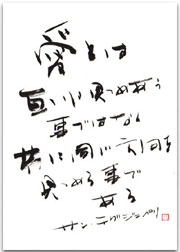 愛とは
互いに見つめあう
事ではなく
共に同じ方向を
見つめる事で
ある
サン・テグジュペリ